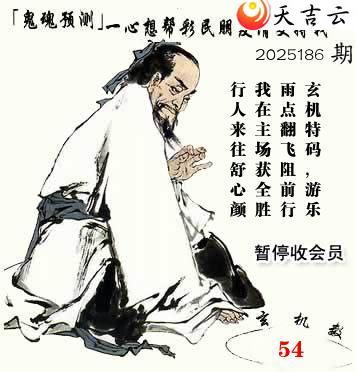 天吉云
「鬼魂预测」一心想帮彩民朋
2025186 期
玄机特码，游乐
雨点翻飞阻前行
我在主场获全胜
行人来往舒心颜
暂停收会员
玄机数
54